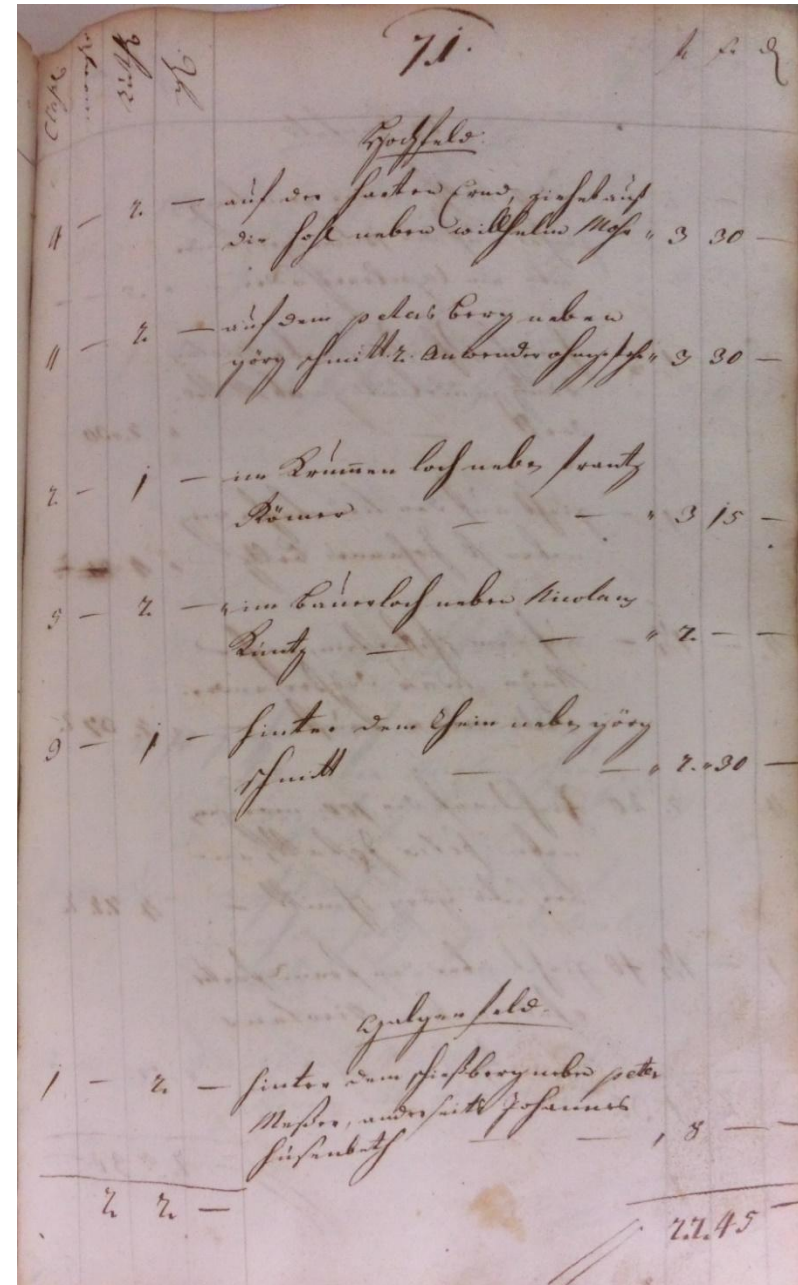 71.
Claß
Hochfeld.
4 — 2. — auf der harten Ernd, ziehet auf
die hohl neben willhelm Mohr " 3 30 —
4 — 2. — auf dem peters berg neben
görg schmitt 2. Anwender " 3 30 —
2. — 1 — im Krummen loch neben frantz
Römer — — " 3 15 —
5 — 2. — im bauerloch neben Nicolaus
Kuntz — — " 2. — —
3 — 1 — hinter dem neben görg
schmitt — — " 2. " 30 —
Galgenfeld.
1 — 2. — hinter dem schießberg neben peter
Meßer, anderseits Johannes
hüsenbeth — — , 8 — —
2. 2. — 22.45 —